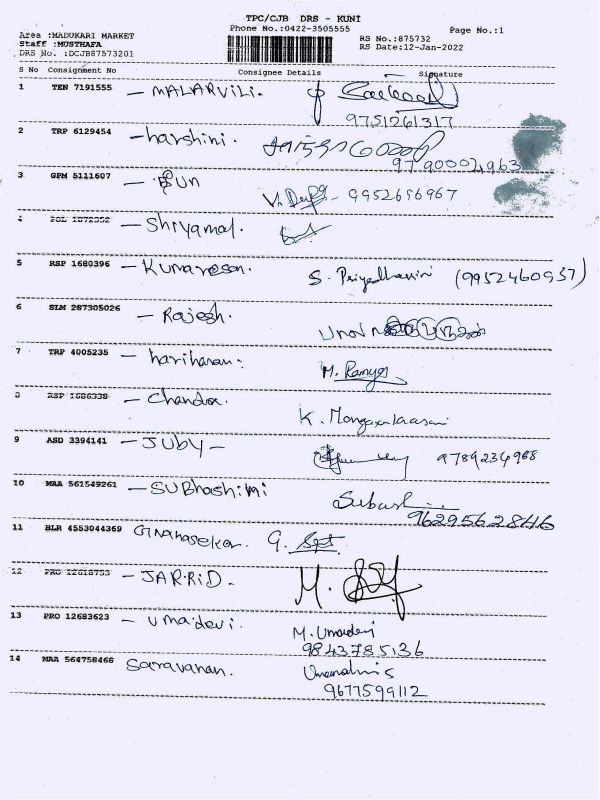 TPC/CJB DRS - KUNI
Phone No.:0422-3505555 Page No.:1
Area :MADUKARI MARKET RS No.:875732
Staff :MUSTHAFA RS Date:12-Jan-2022
DRS No. :DCJB87573201
S No Consignment No Consignee Details Signature
1 TEN 7191555 - MALARVILI.
9751261317
2 TRP 6129454 - harshini.
9790002963
3 GPM 5111607 9952696967
4 - Shriyamal.
5 RSP 1680396 - Kumaresan. S. Priyadharsini (9952460937)
6 SLM 287305026 - Rajesh.
7 TRP 4005235 - hariharan: M. Ramya
8 RSP 1686338 - Chandra. K.
9 ASD 3394141 - JUBY - 9789234988
10 MAA 561549261 - SUBhashini Subash
9629562846
11 BLR 4553044369 Gnanasekar. G.
12 PRO 12618753 - JARRID. M.
13 PRO 12683623 - Umadevi. M. Umadevi
9843785136
14 MAA 564758468 Saravanan.
9677599112